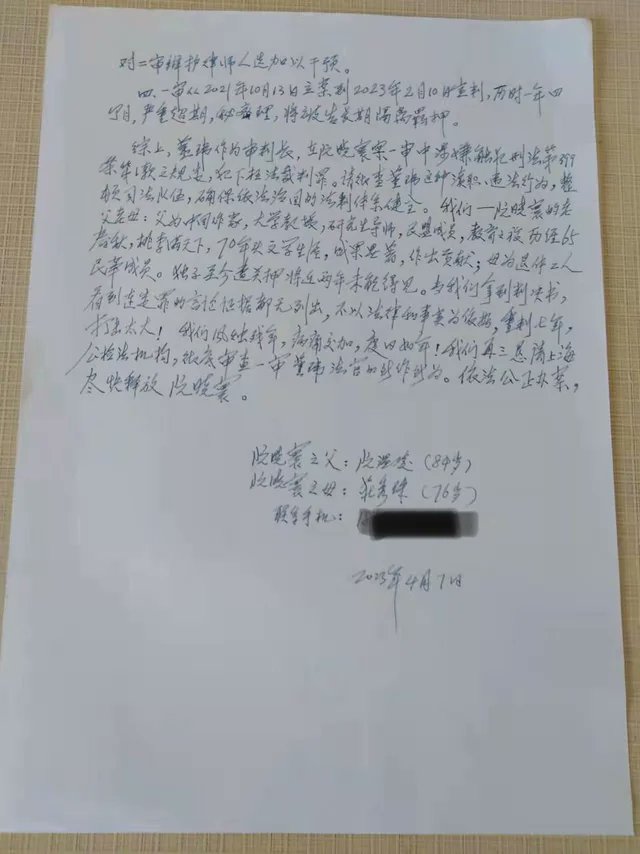 对二审辩护律师人选加以干预。
四、一审从2021年10月13日立案到2023年2月10日宣判，历时一年四
个月，严重超期，秘密审理，将被告长期隔离羁押。
综上，董玮作为审判长，在阮晓寰案一审中涉嫌触犯刑法第399
条第1款之规定，犯下枉法裁判罪。请彻查董玮这种渎职、违法行为，整
顿司法队伍，确保依法治国的法制体系健全。我们—阮晓寰的老
父老母：父为中国作家，大学教授，研究生导师，民盟成员，教育工役历经65
春秋，桃李满天下，70年从文学生涯，成果显著，作出贡献；母为退休工人
民革成员。独子至今遭关押将近两年未能得见。当我们拿到判决书，
看到连定罪的言论证据都无列出，不以法律和事实为依据，重判七年，
打击太大！我们风烛残年，病痛交加，度日如年！我们再三恳请上海
公检法机构，彻底审查一审董玮法官的所作所为。依法公正办案，
尽快释放阮晓寰。
阮晓寰之父：阮温凌（84岁）
阮晓寰之母：庄秀珠（76岁）
联系手机：
2023年4月7日